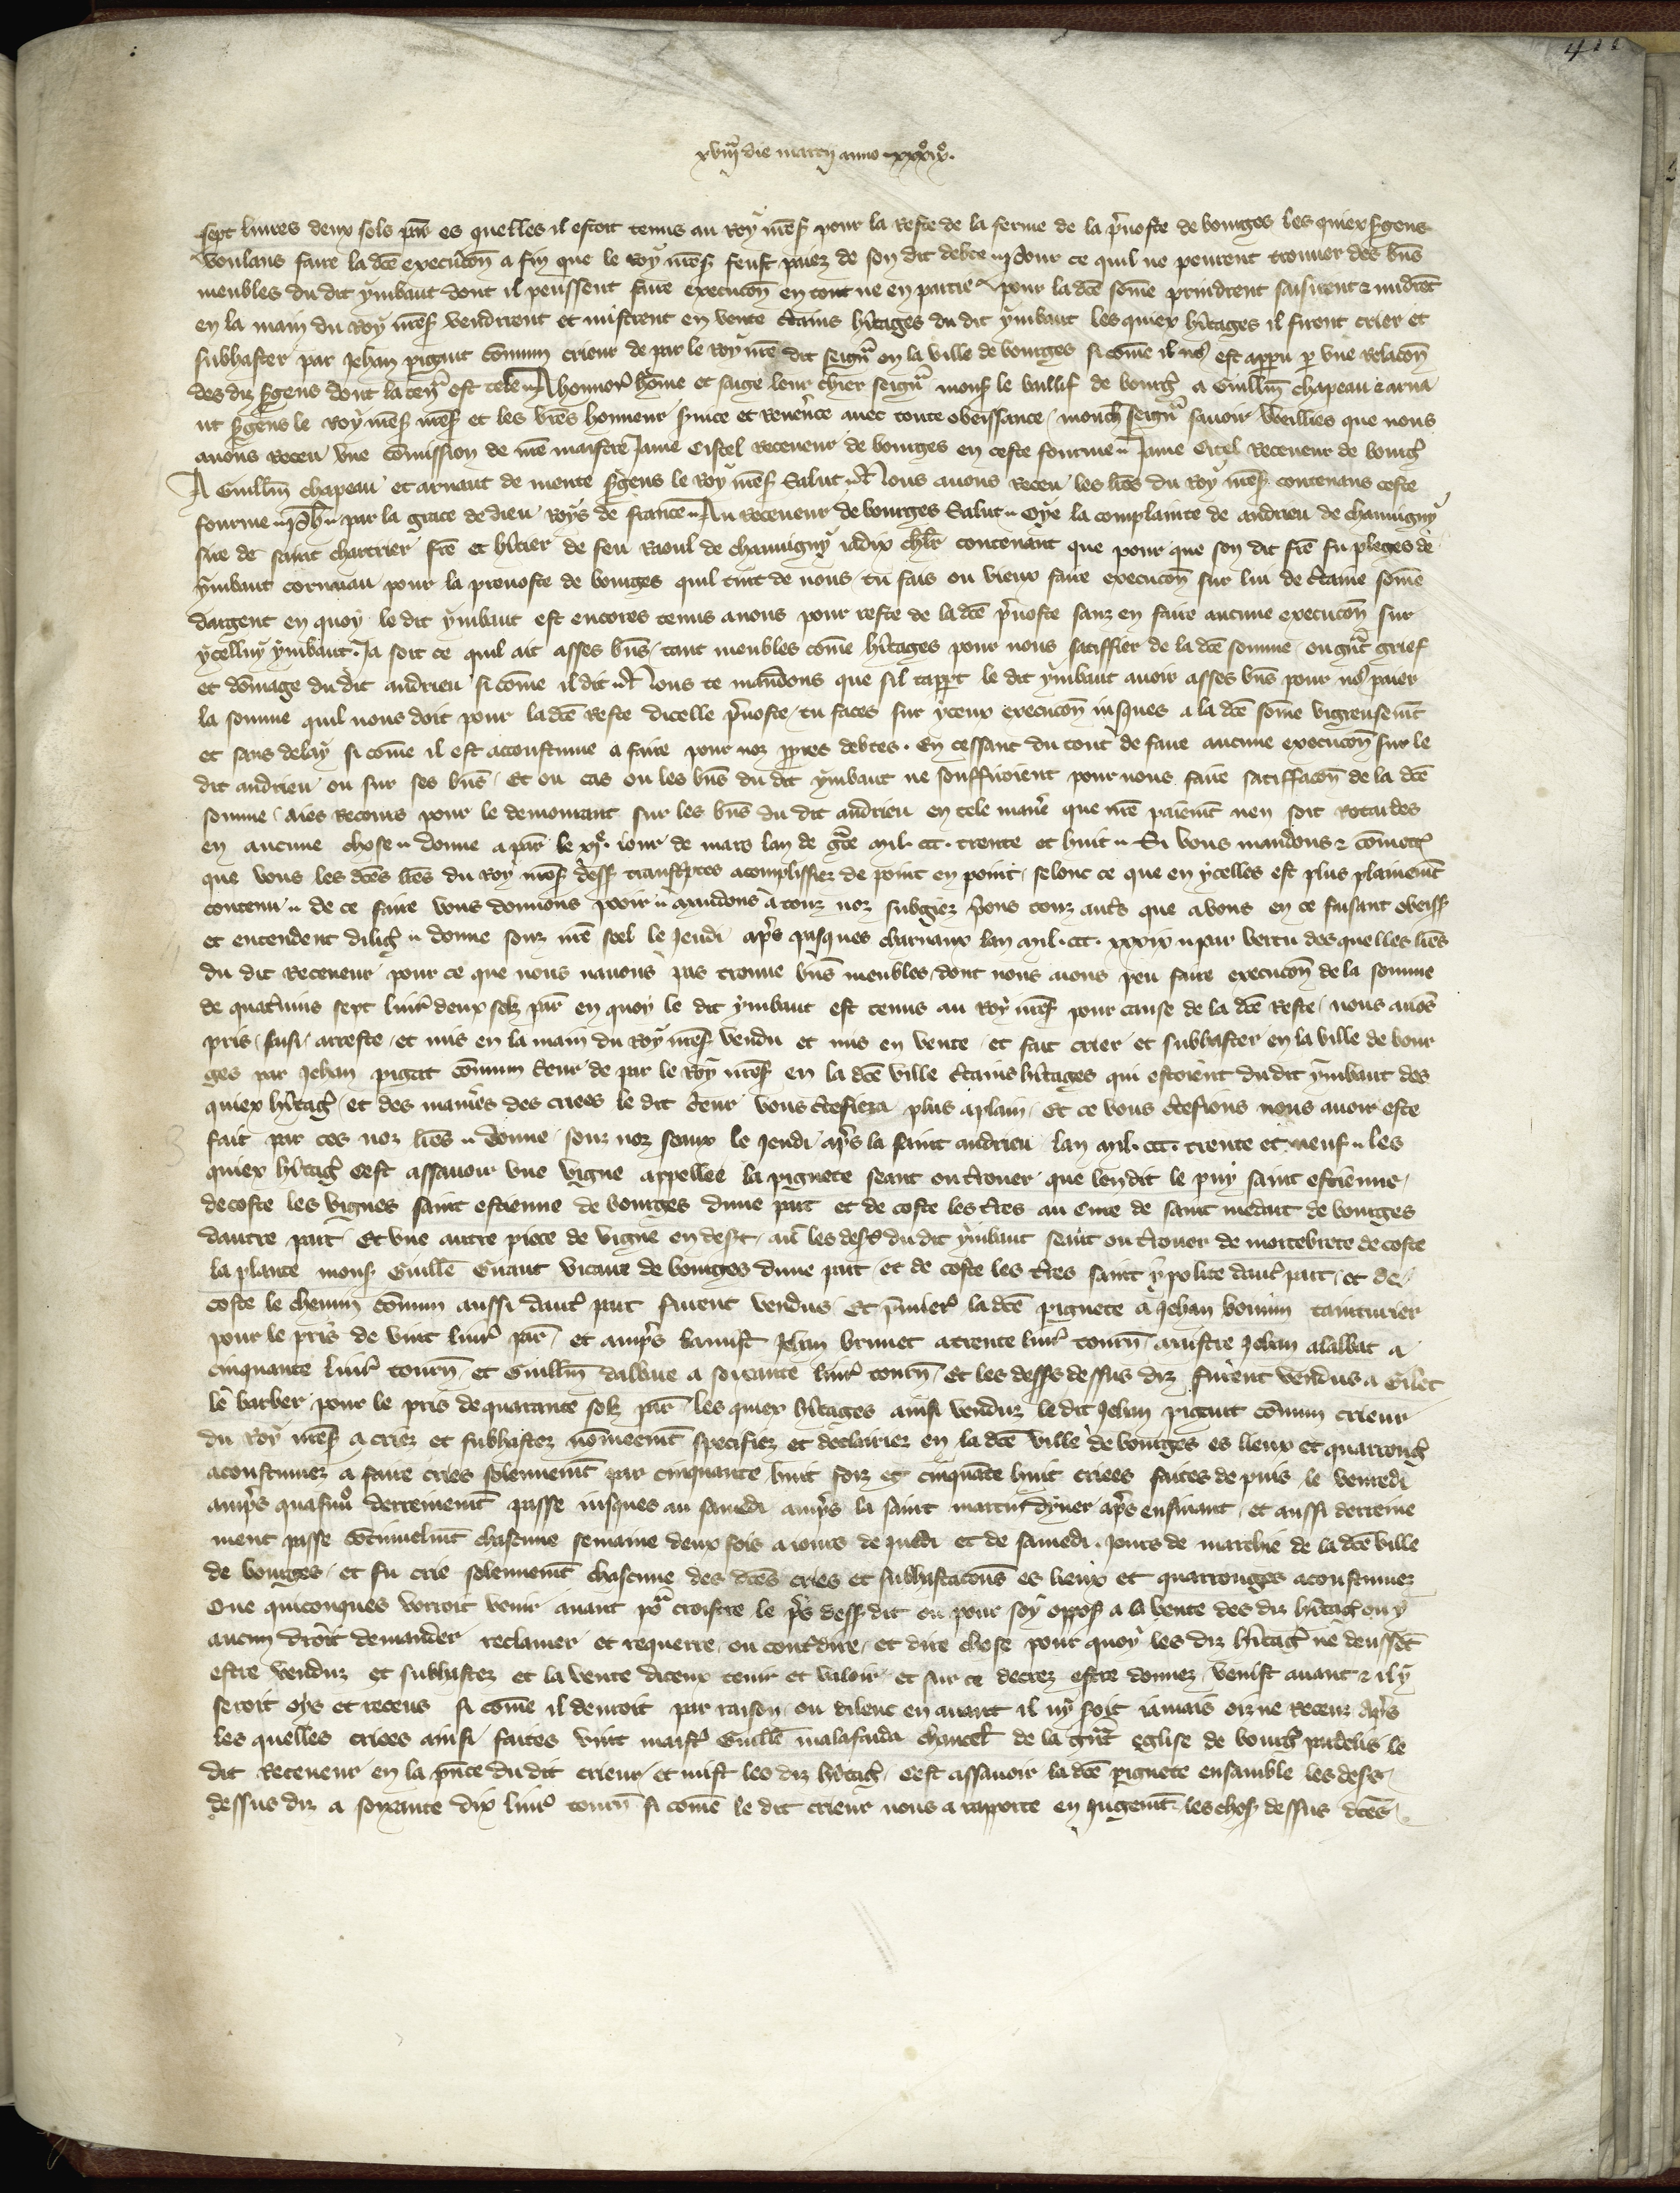 411
xviija die marcij anno xxxixo.
sept liures deux sols par es quelles il estoit tenus au Roy nres pour la Reste de la ferme de la preuoste de bourges les quiex sergens
voulans faire la dce execucon a fin que le roy nres feust paiez de son dit debte Pour ce quil ne peurent trouuer des bns
meubles du dit ymbaut dont il peussent faire execucon en tout ne en partie pour la dce some prindrent saisirent & midrent
en la main du Roy nres vendirent et mistrent en vente certains heritages du dit ymbaut les quiex heritages il firent crier et
subhaster par Jehan pigaut comun crieur de par le Roy nre dit seigneur en la ville de bourges si come il nous est apparu par vne Relacon
des diz sergens dont la teneur est tele A honnorable home et sage leur chier seigneur mons le baillif de bourges a Guillm chapeau & arna
ut sergens le Roy nres et les vres honneur seruice et Reuerence auec toute obeissance, monch seigneur sauoir weillies que nous
auons Receu vne comission de nre maistre Jame Cistel Receueur de bourges en ceste fourme Jame Citel Receueur de bourges
A Guillm chapeau et arnaut de mente sergens le Roy nres Salut Nous auons Receu les lres du Roy nres contenans ceste
fourme Ph par la grace de dieu Roys de france Au Receueur de bourges Salut Oye la complainte de andrieu de chauuigny
sire de saint chartrier frere et heritier de feu Raoul de chauuigny iadix chlr contenant que pour que son dit frere fu pleges de
ymbaut cornuau pour la preuoste de bourges quil tint de nous, tu fais ou vieux faire execucon sur lui de certaine some
dargent en quoy le dit ymbaut est encores tenus a nous pour reste de la dce preuoste sanz en faire aucune execucon sur
ycelluy ymbaut. Ja soit ce quil ait asses bns, tant meubles come heritages pour nous satiffier de la dce somme, ou grant grief
et domage du dit andrieu si come il dit Nous te mandons que sil tappert le dit ymbaut auoir asses bns pour nous paier
la somme quil nous doit pour la dce Reste dicelle preuoste, tu faces sur yceux execucon iusques a la dce some vigreusement
et sans delay si come il est acoustume a faire pour noz propres debtes. En cessant du tout de faire aucune execucon sur le
dit andrieu ou sur ses bns, Et ou cas ou les bns du dit ymbaut ne souffiroient pour nous faire satiffacon de la dce
somme, aies Recours pour le demourant sur les bns du dit andrieu en tele maniere que nre paiement nen soit Retardes
en aucune chose donne a par le xje iour de mars lan de grace mil. ccc. trente et huit Si vous mandons & comettons
que vous les dces lres du Roy nres dess transcriptes acomplissiez de point en point, selonc ce que en ycelles est plus plainement
contenu de ce faire vous donnons pooir mandons a touz noz subgiez prions touz autres que a vous en ce faisant obeiss
et entendent diligement donne souz nre seel le Jeudi apres pasques charnaux lan mil. ccc. xxxix par vertu des quelles lres
du dit Receueur pour ce que nous nauons pas trouue bns meubles dont nous aions peu faire execucon de la somme
de quatrevins sept liures deux solz par en quoy le dit ymbaut est tenus au Roy nres pour cause de la dce Reste, nous auons
pris, saisi, arreste, et mis en la main du Roy nres vendu et mis en vente, et fait crier et subhaster en la ville de bour
ges par Jehan pigaut comun crieur de par le Roy nres en la dce ville certains heritages qui estoient du dit ymbaut des
quiex heritages, et des manieres des criees le dit crieur vous certefiera plus aplain, Et ce vous certefions nous auoir este
fait par ces noz lres donne souz noz seaux le Jeudi apres la saint andrieu lan mil. ccc. trente et neuf les
quiex heritages cest assauoir vne vigne appellee la pignete seant ou terrouer que len dit le puy saint estienne,
decoste les vignes saint estienne de bourges dune part et de coste les terres au cure de saint medart de bourges
dautre part Et vne autre piece de vigne en desert, auec les deserts du dit ymbaut seant ou terrouer de mortebrete de coste
la plante mons Guille Guaut vicaire de bourges dune part, et de coste les terres saint ypolite dautre part, et de
coste le chemin comun aussi dautre part furent vendus Et premierement la dce pignete a Jehan bonnin tainturier
pour le pris de vint liures par, et amprs la mist Jehan brunet a trente liures tourn, maistre Jehan alabat a
cinquante liures tourn, et Guillm dalbue a soixante liures tourn, Et les desers dessus diz furent vendus a Gilet
le barber pour le pris de quarante solz par, les quiex heritages ainsi venduz le dit Jehan pigaut comun crieur
du Roy nres a criez et subhastez nomeement specifiez et declairiez en la dce ville de bourges es lieux et quarrouges
acoustumez a faire cries solennement par cinquante huit foiz et cinquante huit criees faites de puis le venredi
amprs quasimo derrenement passe iusques au samedi amprs la saint martin dyuer apres ensiuant, et aussi derreine
ment passe continuelment chascune semaine deux fois a iours de Jeudi et de samedi, Jours de marchie de la dce ville
de bourges, et fu crie solennement chascune des dces cries et subhastacons es lieux et quarrouges acoustumez
Que quiconques vorroit venir auant por croistre le pris dess dit ou pour soy opposer a la vente des diz heritages ou y
aucun droit demander reclamer et requerre ou contredire, et dire chose pour quoy les diz heritages ne deussent
estre venduz et subhastez et la vente diceux tenir et valoir, et sur ce decrez estre donnez, venist auant & il y
seroit oys et receus si come il deuroit par raison, ou dilenc en auant il ny seroit iamais oiz ne Receuz Apres
les quelles criees ainsi faites vint maistre Guille malafaida chancel de la grant eglise de bourges pardeuers le
dit Receueur en la presence du dit crieur et mist les diz heritages, cest assauoir la dce pignete ensamble les desers
dessus diz a soixante dix liures tourn si come le dit crieur nous a rapporte en Jugement les choses dessus dces,